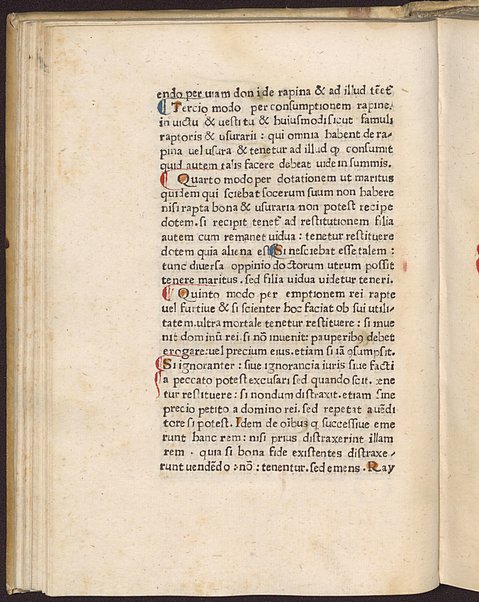 endo per uiam doni de rapina & ad illud tēet᷒
Tercio modo per consumptionem rapine.
in uictu & uestitu & huiusmodi sicut famuli
raptoris & usurarii : qui omnia habent de ra-
pina uel usura & tenetur ad illud ꝙ consumit
quid autem talis facere debeat uide in summis.
Quarto modo per dotationem ut maritus
quidem qui sciebat socerum suum non habere
nisi rapta bona & usuraria non potest recipe
dotem. si recipit tenet᷒ ad restitutionem filia
autem cum remanet uidua : tenetur restituere
dotem quia aliena est Si nesciebat esse talem :
tunc diuersa oppinio doctorum utrum possit
tenere maritus. sed filia uidua uidetur teneri.
Quinto modo per emptionem rei rapte
uel furtiue & si scienter hoc faciat ob sui utili-
tatem. ultra mortale tenetur restituere : si inue
nit dominū rei. si nō inuenit: pauperibꝰ debet
erogare: uel precium eius. etiam si iā ꝯsumpsit.
Si ignoranter : siue ignorancia iuris siue facti
a peccato potest excusari sed quando scit. tene
tur restituere : si nondum distraxit. etiam sine
precio petito a domino rei. sed repetat a uēdi
tore si potest. Idem de oībus q successiue eme
runt hanc rem : nisi prius distraxerint illam
rem . quia si bona fide existentes distraxe-
runt uendēdo : nō : tenentur. sed emens . Ray